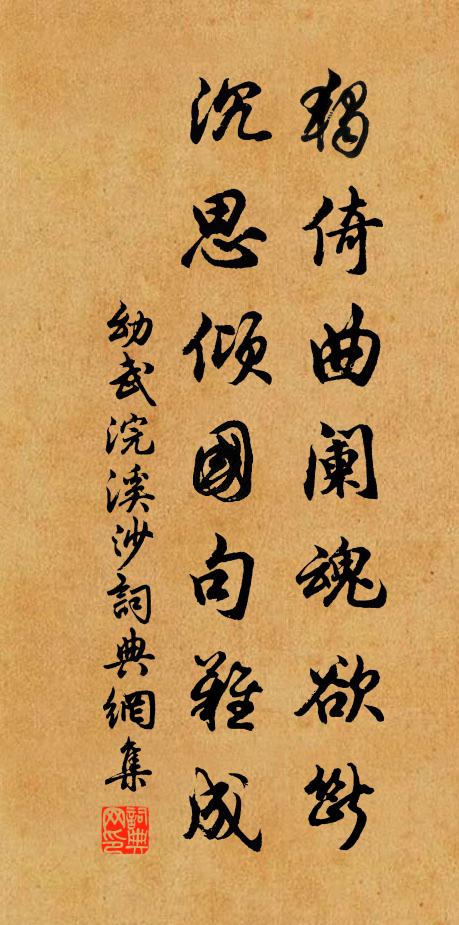 獨倚曲闌魂欲斷
沉思傾國句難成
幼武浣溪沙詞典網集
詞典网印